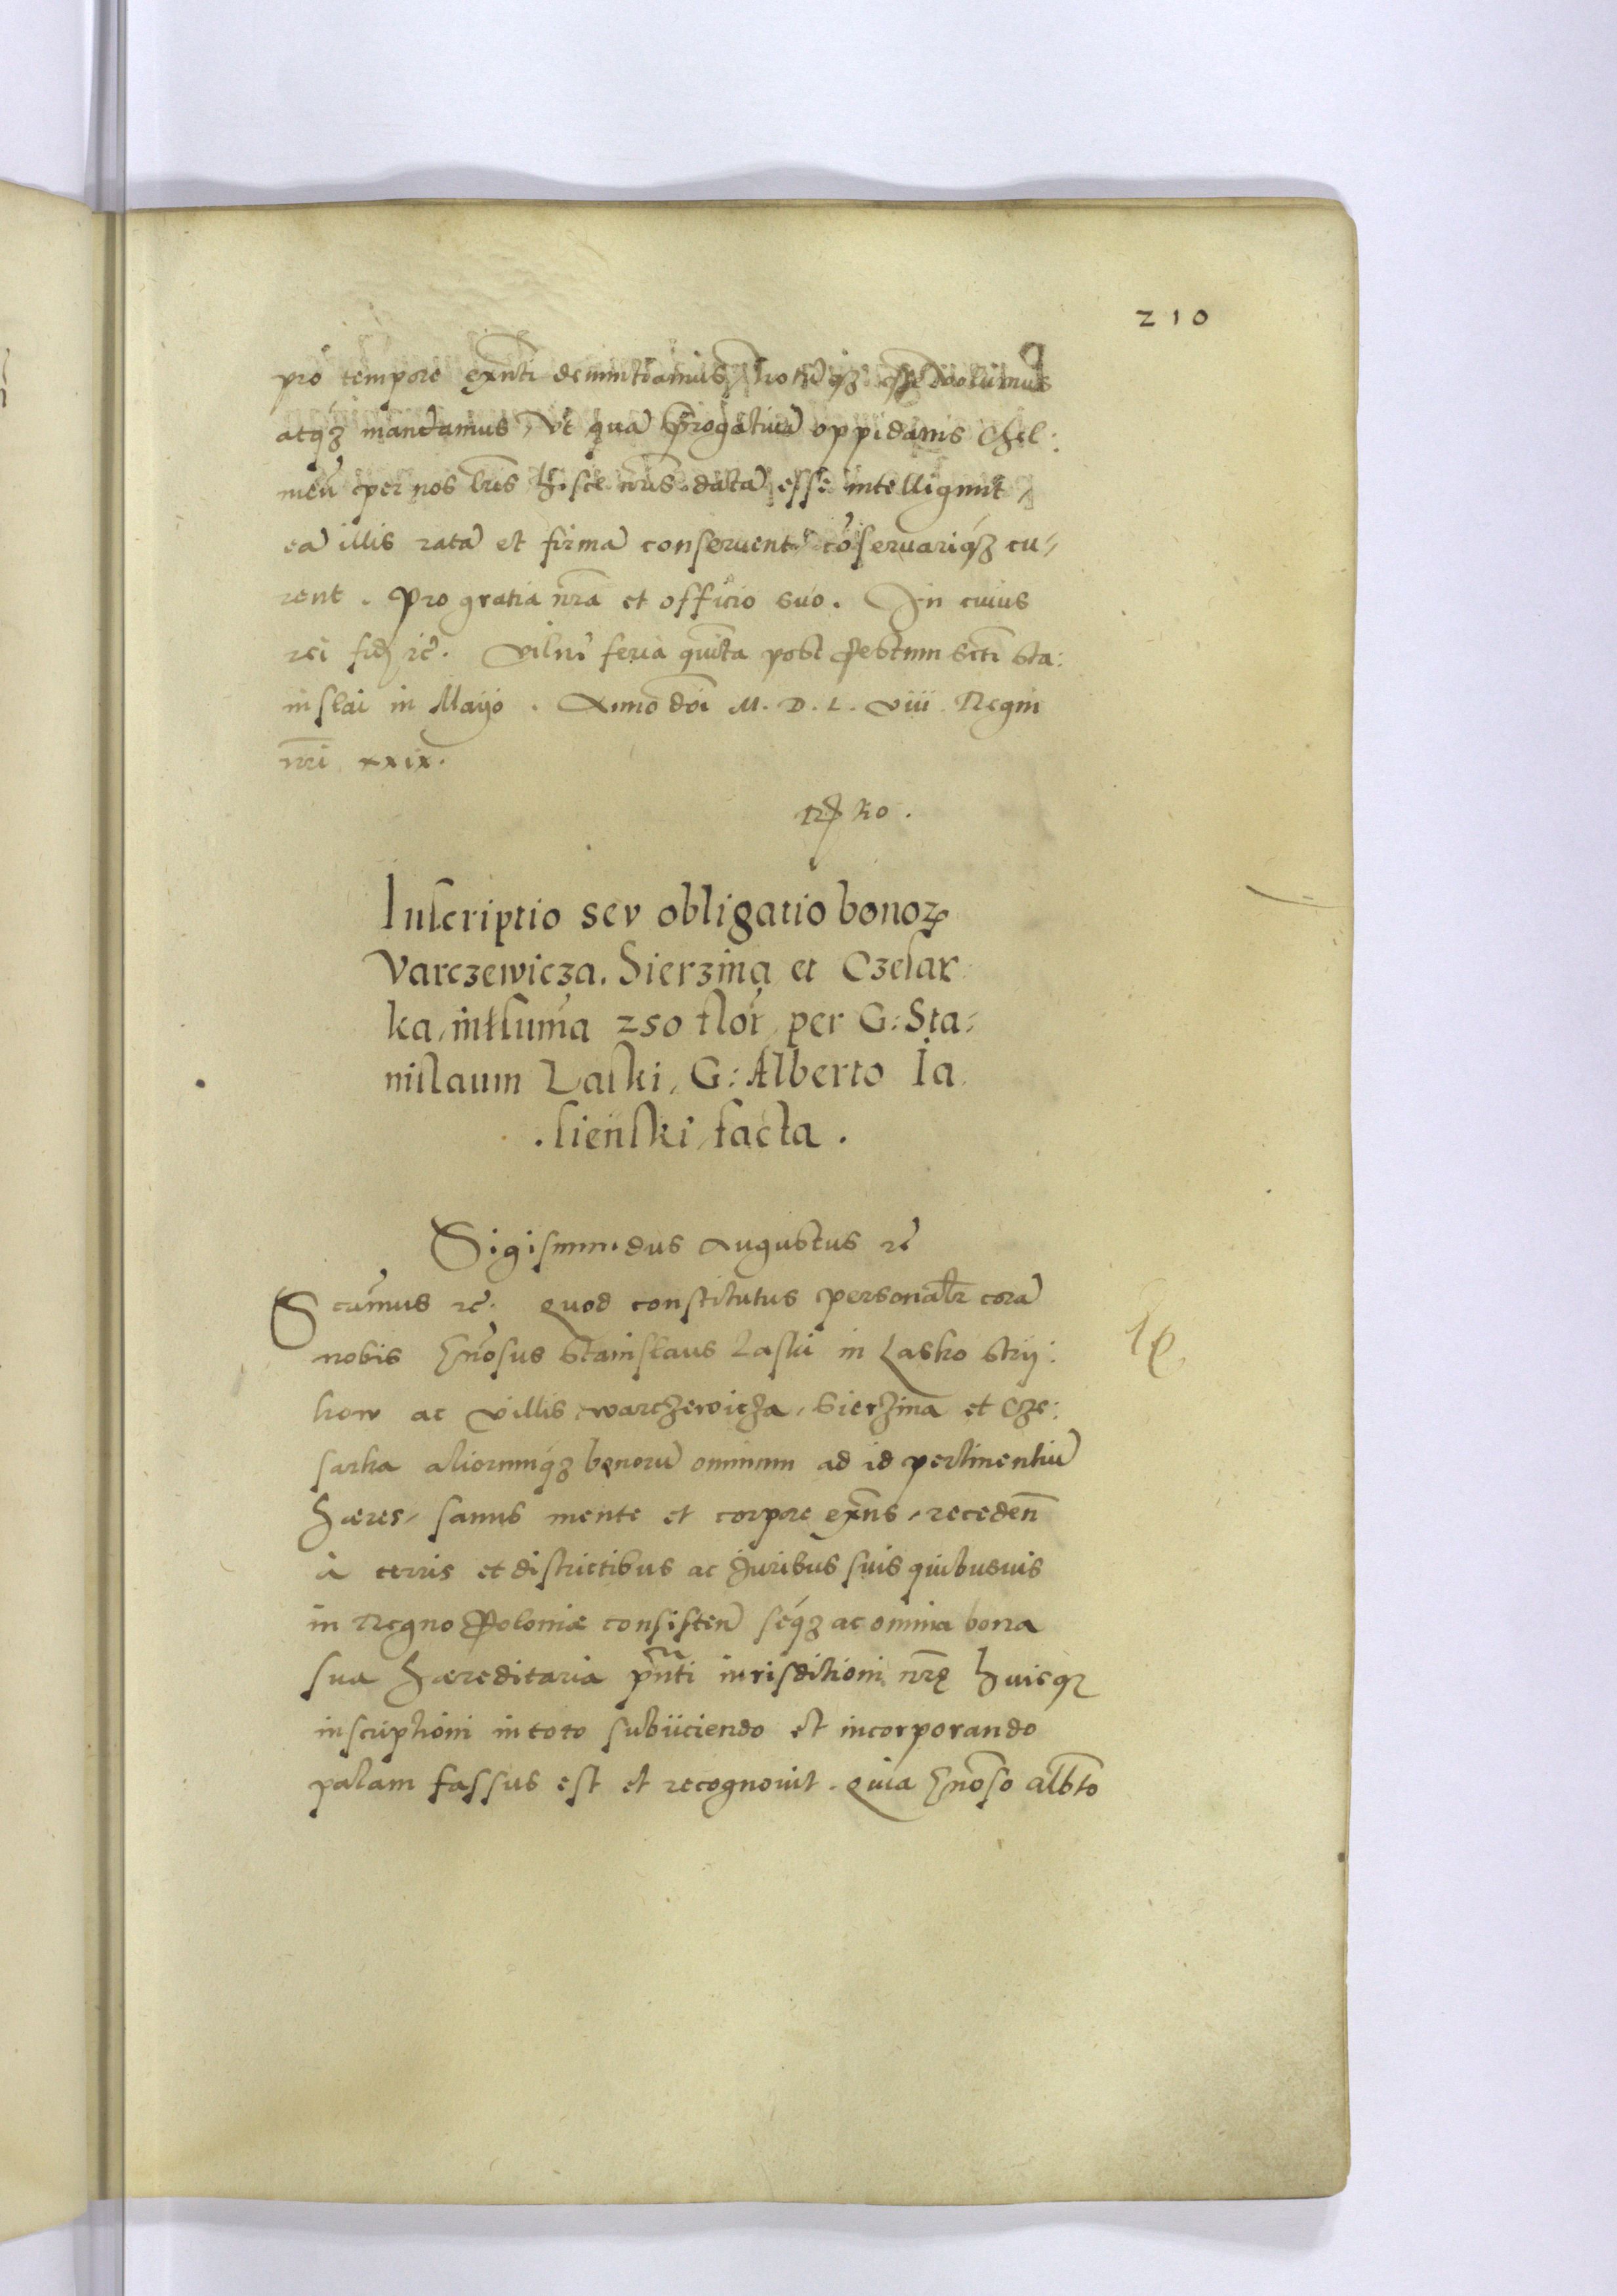 210
pro tempore exñti denuntiamus, notūqȝ esse volumus
atqȝ mandamus, Vt quā prerogatiuā oppidanis Chel:
meñ per nos lr̃is hisce nr̃is datā esse intelligunt,
eā illis ratā et firmā conseruent, cōseruariqȝ cu„
rent. Pro gratia nr̃a et officio suo. In cuius
rei fidȝ ꝛc̃. Vilnȩ feria quīta post Festum Sc̃ti Sta:
nislai in Mayo. Anno dõi M. D. L. viii. Regni
nr̃i xxix.
Inscriptio sev obligatio bonoꝝ
Varczewicza. Sierzina et Czesar
ka, in sum̃a 250 flor̃, per G: Sta:
nislaum Laski, G: Alberto Ia
. sieñski, facta .
Sigismundus Augustus ꝛc̃
Scim̃us ꝛc̃. Quod constitutus personalr̃ corā
nobis Gñosus Stanislaus Laski in Lasko Stry:
kow ac villis, warczewicza, Sierzina et Cze:
sarka aliorumqȝ bonorū omnium ad id pertinentiū
hæres, sanus mente et corpore exñs, recedeñ
à terris et districtibus ac juribus suis quibusuis
in Regno Poloniæ consisteñ seqȝ ac omnia bona
sua hæreditaria pñti iurisditioni nr̃ę huicqȝ
inscriptioni in toto subiiciendo et incorporando
palam fassus est et recognouit. Quia Gñoso Albt̃o